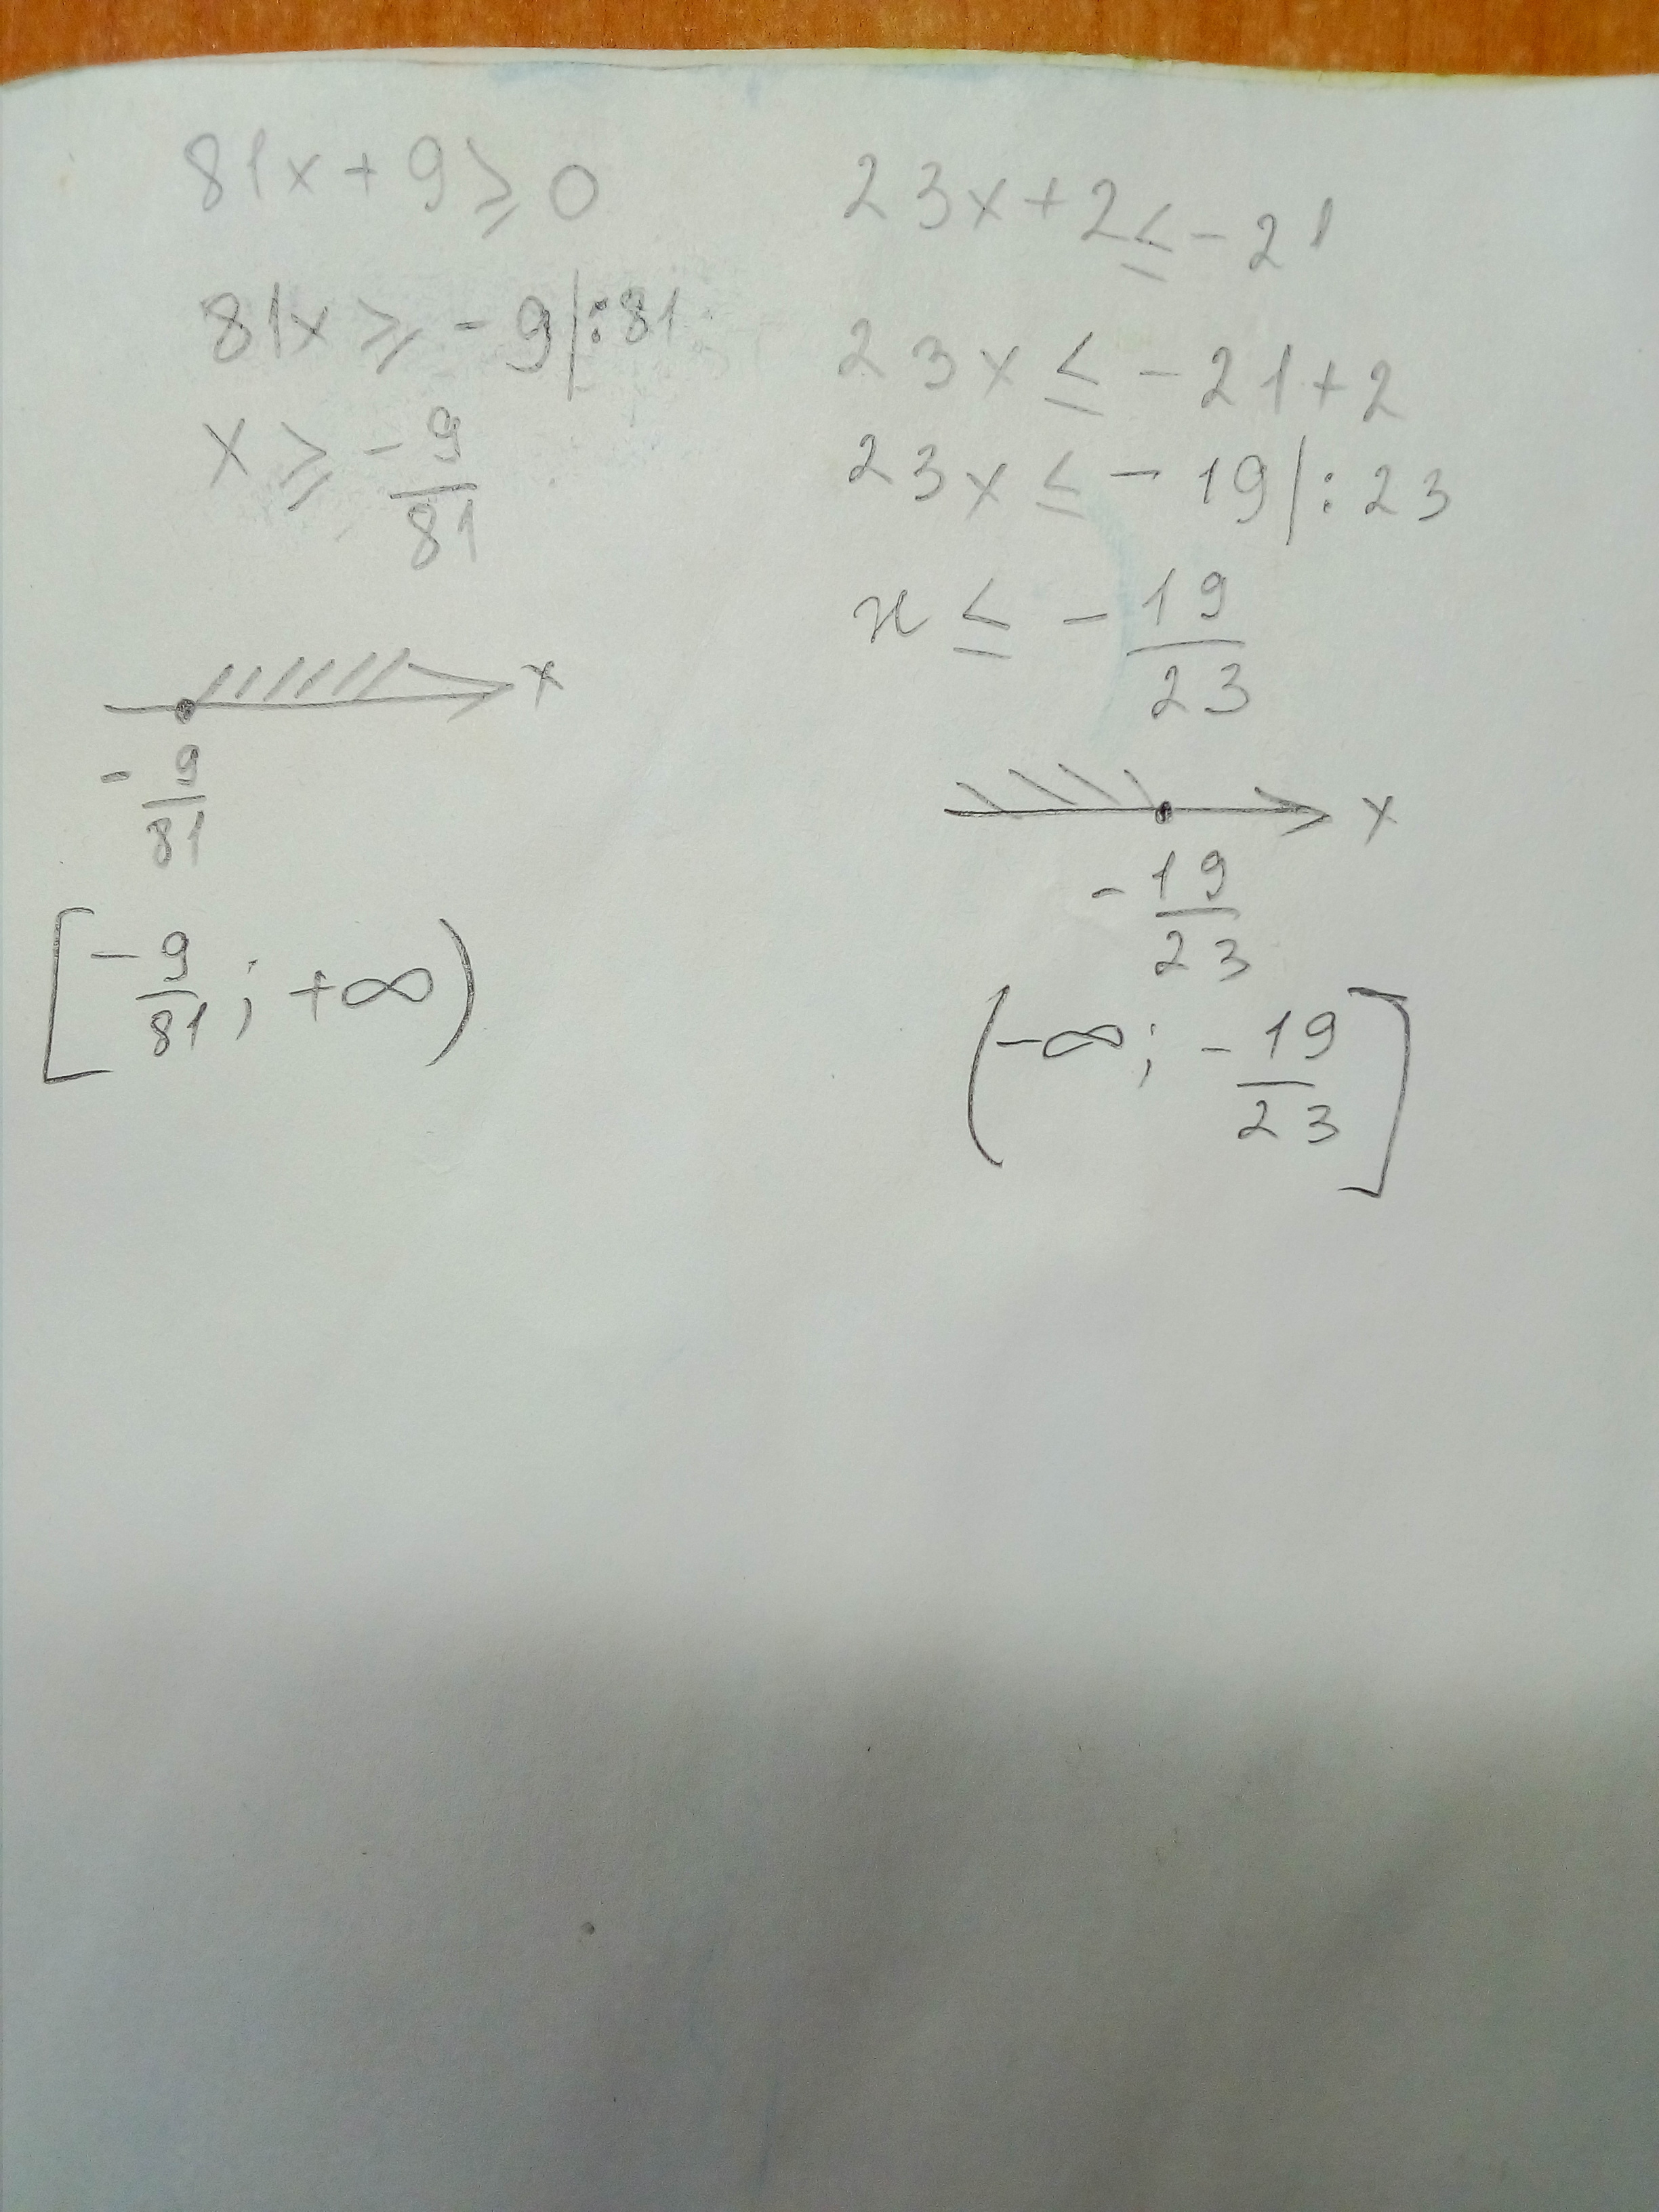 81x + 9 ⩾ 0
81x ⩾ - 9 |:81
x ⩾ - 9/81
x
- 9/81
[- 9/81; +∞)
23x + 2 ≤ - 21
23x ≤ - 21 + 2
23x ≤ - 19 |: 23
x ≤ - 19/23
x
- 19/23
(-∞; - 19/23]